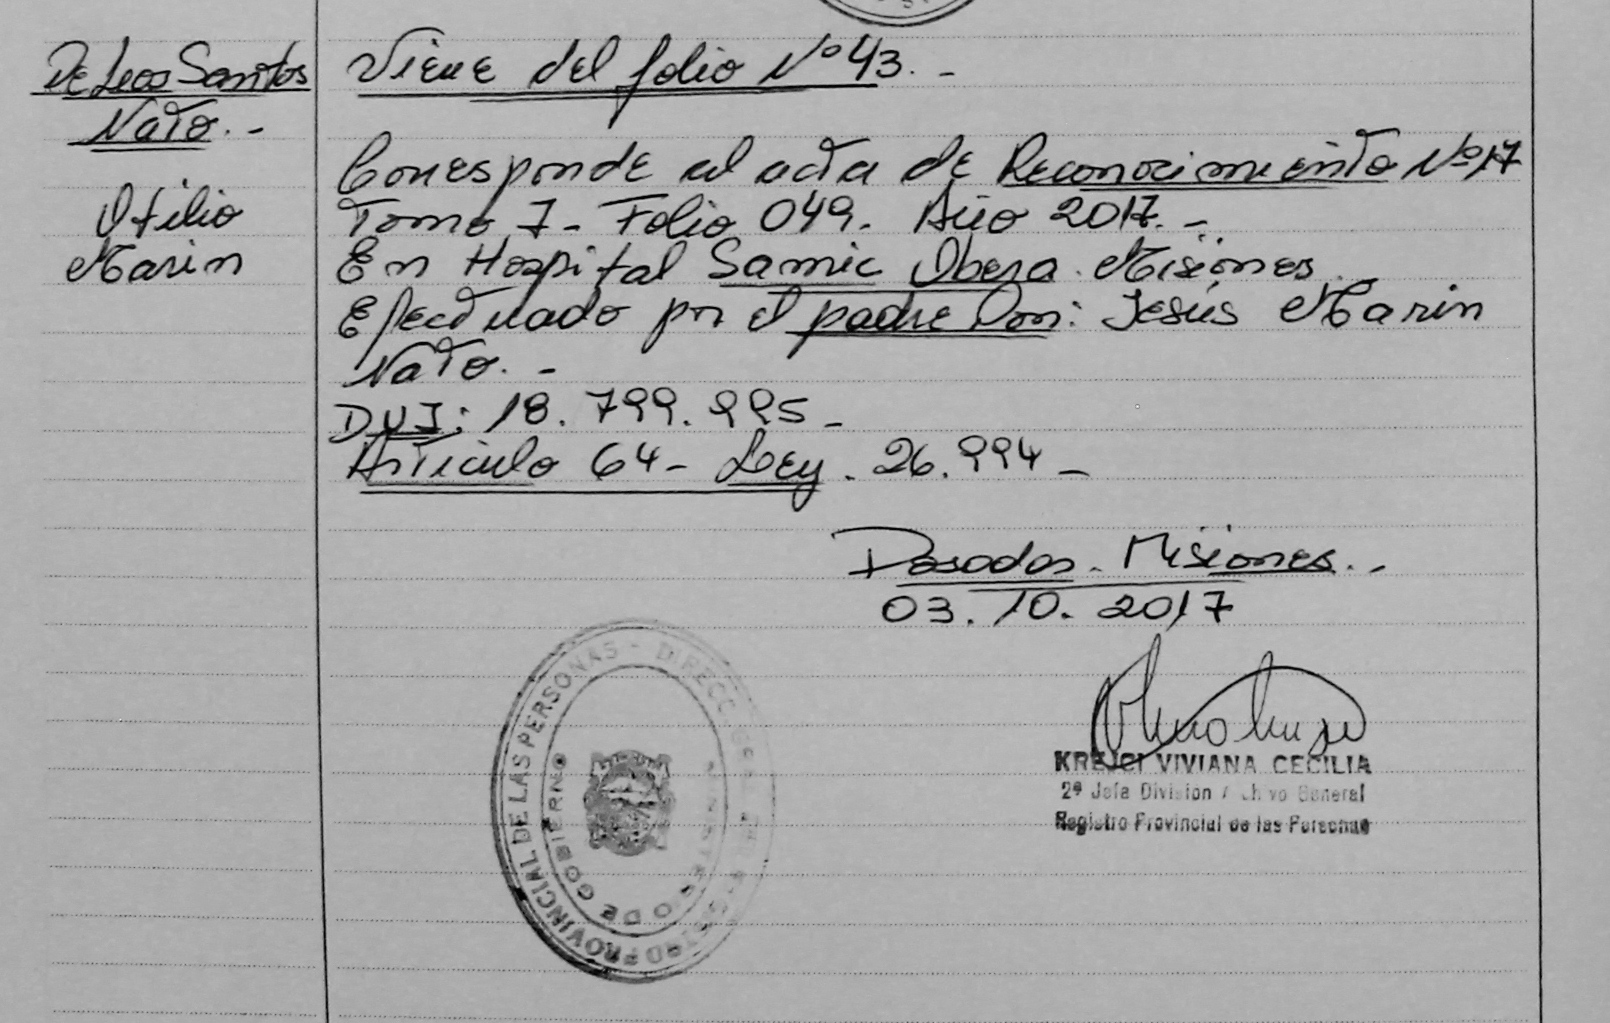 De Leos Santos
Nato.-
Otilio
Marin
Viene del folio Nº 43.-
Corresponde al acta de Reconocimiento Nº 17
Tomo I - Folio 049. Año 2017.-
En Hospital Samic Obera. Misiones.
Efectuado por el padre Don: Jesús Marin
Nato.-
DNI: 18.799.995-
Articulo 64- Ley. 26.994-
Posadas. Misiones.-
03.10.2017
KREJCI VIVIANA CECILIA
2ª Jefa Division Archivo General
Registro Provincial de las Personas
PROVINCIAL DE LAS PERSONAS - DIRECC
MINISTERIO DE GOBIERNO